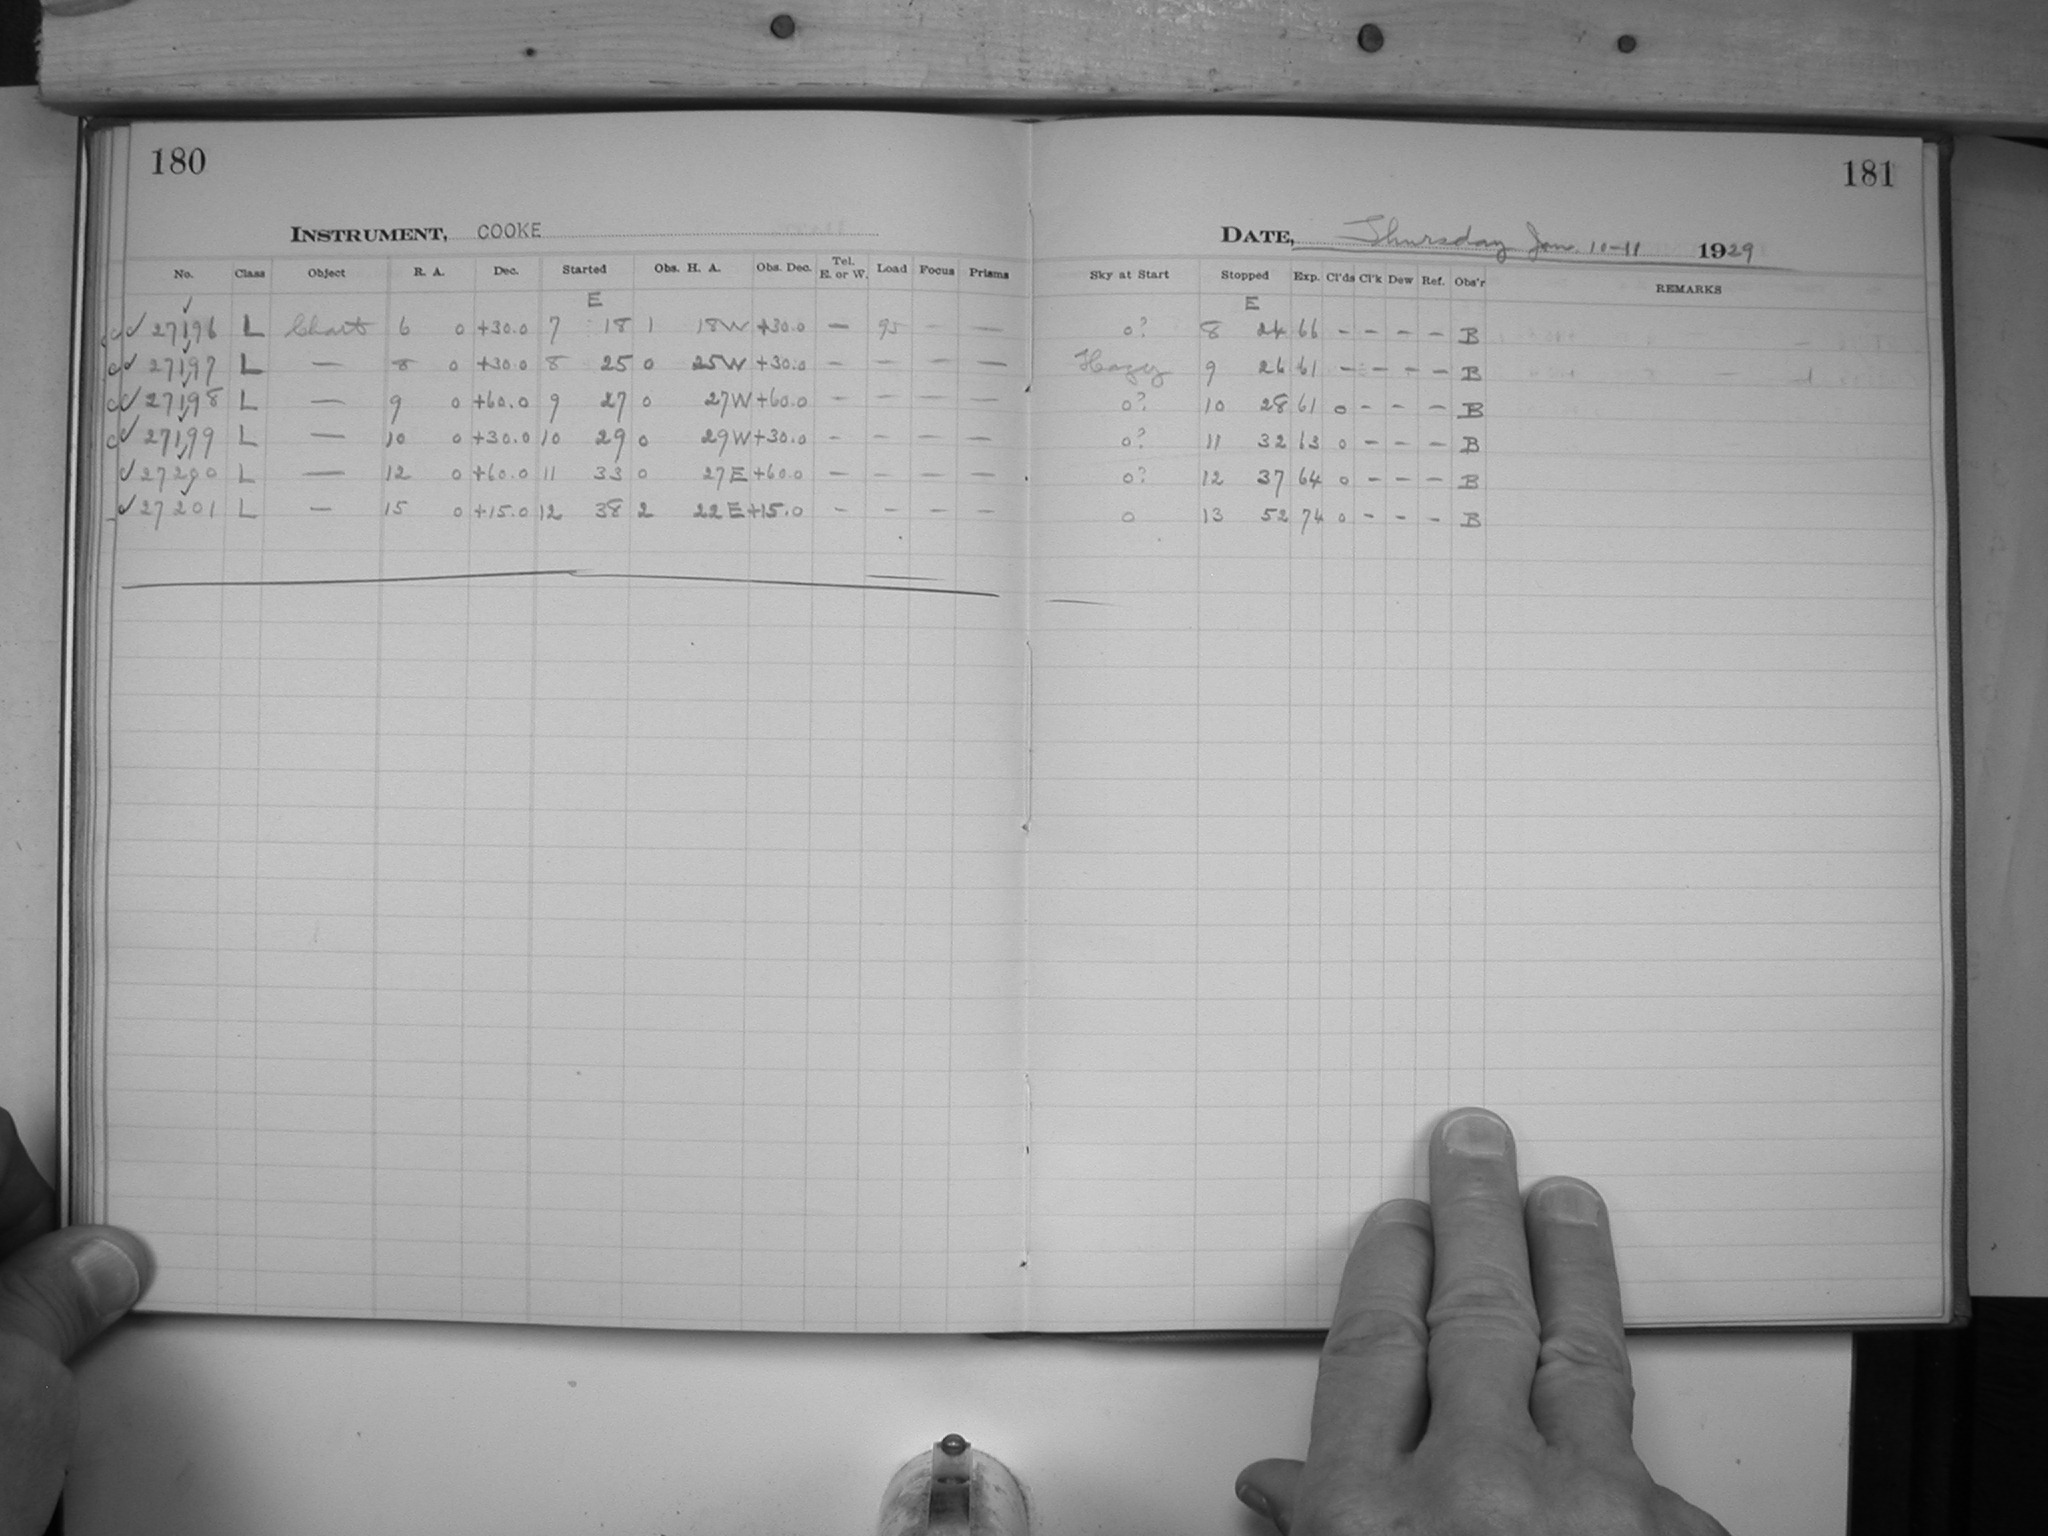 180
INSTRUMENT, COOKE
No. Class Object R. A. Dec. Started Obs. H. A. Obs. Dec. Tel. E. or W. Load Focus Prisms
E
27196 L Chart 6 0 +30.0 7 18 1 18W +30.0 — 95 — —
27197 L — 8 0 +30.0 8 25 0 25W +30.0 — — — —
27198 L — 9 0 +60.0 9 27 0 27W +60.0 — — — —
27199 L — 10 0 +30.0 10 29 0 29W +30.0 — — — —
27200 L — 12 0 +60.0 11 33 0 27E +60.0 — — — —
27201 L — 15 0 +15.0 12 38 2 22E +15.0 — — — —
181
DATE, Thursday Jan. 10-11 1929
Sky at Start Stopped Exp. Cl'ds Cl'k Dew Ref. Obs'r REMARKS
E
0? 8 24 66 — — — — B
Hazy 9 26 61 — — — — B
0? 10 28 61 0 — — — B
0? 11 32 63 0 — — — B
0? 12 37 64 0 — — — B
0 13 52 74 0 — — — B